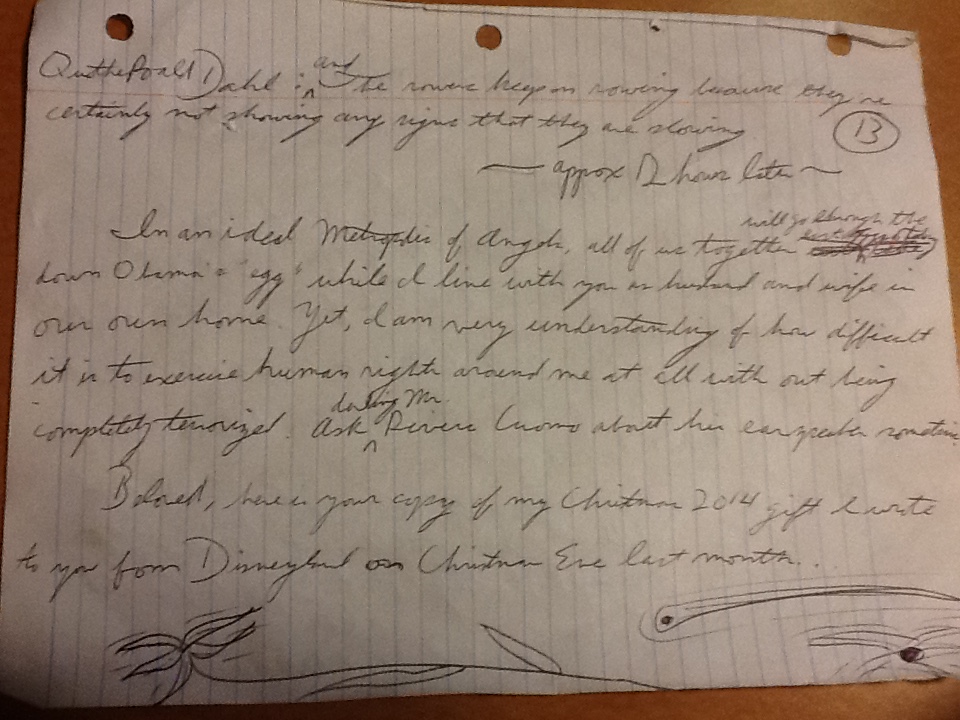 Dahl : and The rowers keep on rowing because they're
certainly not showing any signs that they are slowing.
13
~ approx 12 hours later ~
In an ideal Metropolis of Angels, all of us together will go through the
down Obama's "egg" while I live with you as husband and wife in
our own home. Yet, I am very understanding of how difficult
it is to exercise human rights around me at all with out being
completely terrorized. Ask darling Mr. Rivers Cuomo about his ear speaker sometime.
Beloved, here is your copy of my Christmas 2014 gift I wrote
to you from Disneyland on Christmas Eve last month..